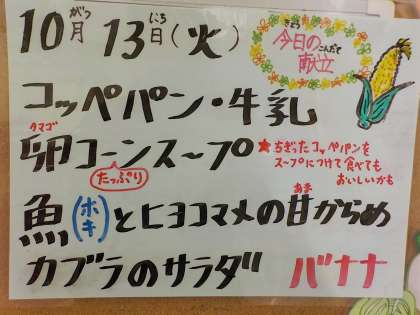 10月 13日(火)
がつ にち
きょう
今日の
こんだて
献立
コッペパン・牛乳
タマゴ
卵コーンスープ
たっぷり
★ちぎったコッペパンを
スープにつけて食べても
おいしいかも
魚(ホキ)とヒヨコマメの甘からめ
あま
カブラのサラダ バナナ